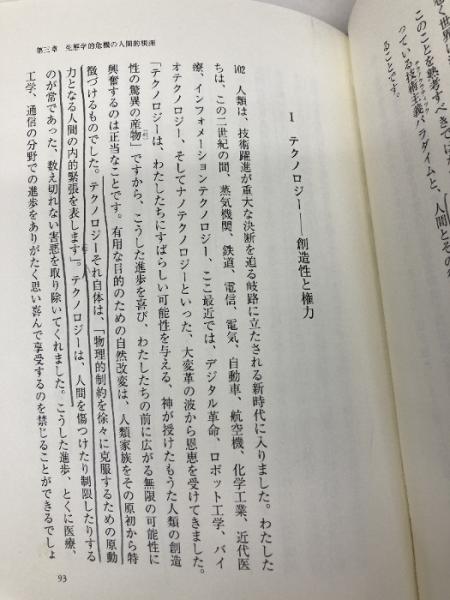 悪く世界に
このことを熟考すべきでは
っている技術主義パラダイムと、人間とそ
テクノクラティック
ることです。
第三章 生態学的危機の人間的根源
I テクノロジー——創造性と権力
102 人類は、技術躍進が重大な決断を迫る岐路に立たされる新時代に入りました。わたした
ちは、この二世紀の間、蒸気機関、鉄道、電信、電気、自動車、航空機、化学工業、近代医
療、インフォメーションテクノロジー、ここ最近では、デジタル革命、ロボット工学、バイ
オテクノロジー、そしてナノテクノロジーといった、大変革の波から恩恵を受けてきました。
「テクノロジーは、わたしたちにすばらしい可能性を与える、神が授けたもうた人類の創造
性の驚異の産物」ですから、こうした進歩を喜び、わたしたちの前に広がる無限の可能性に
興奮するのは正当なことです。有用な目的のための自然改変は、人類家族をその原初から特
徴づけるものでした。テクノロジーそれ自体は、「物理的制約を徐々に克服するための原動
力となる人間の内的緊張を表します」。テクノロジーは、人間を傷つけたり制限したりする
のが常であった、数え切れない害悪を取り除いてくれました。こうした進歩、とくに医療、
工学、通信の分野での進歩をありがたく思い喜んで享受するのを禁じることができるでしょ
93